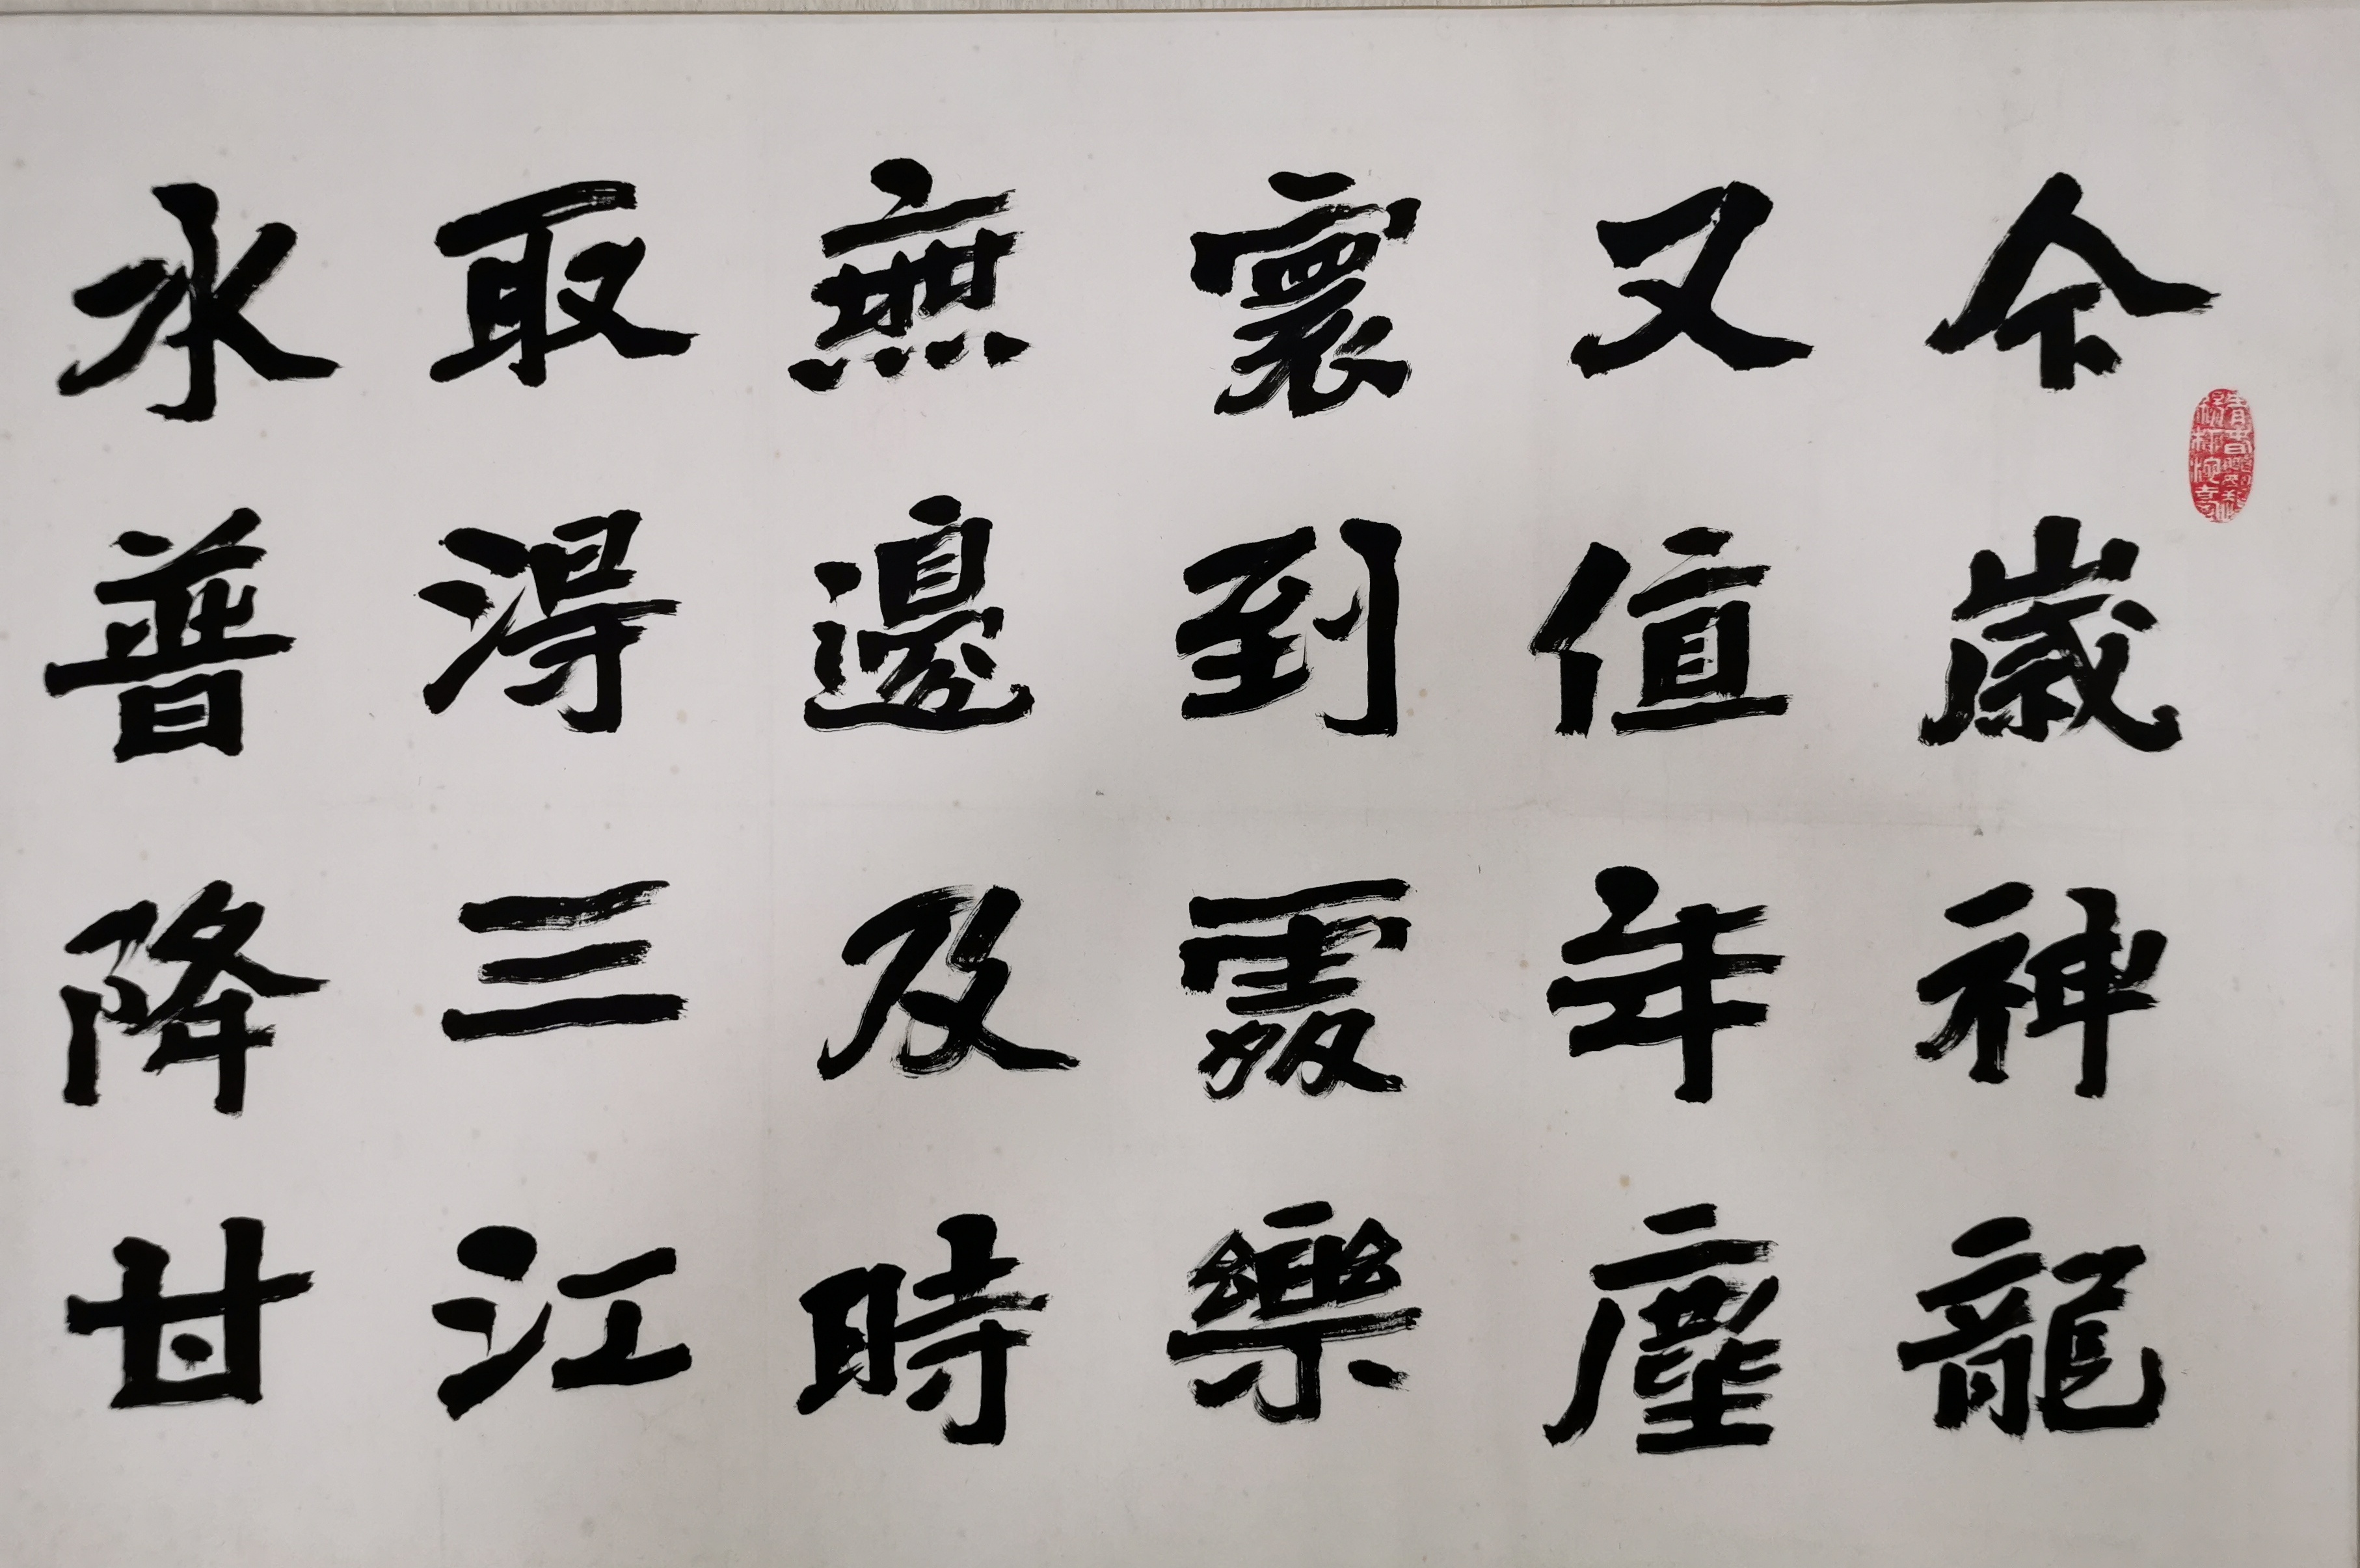 今歲神龍
又值年塵
寰到處樂
無邊及時
取得三江
水普降甘